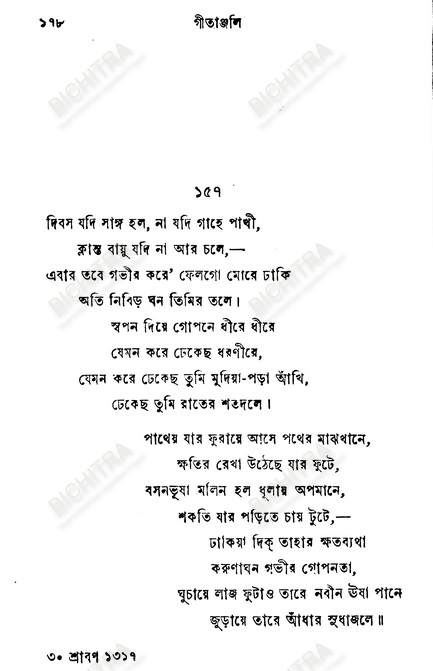 ১৭৮ গীতাঞ্জলি
১৫৭
দিবস যদি সাঙ্গ হল, না যদি গাহে পাখী,
ক্লান্ত বায়ু যদি না আর চলে,—
এবার তবে গভীর করে' ফেলগো মোরে ঢাকি
অতি নিবিড় ঘন তিমির তলে।
স্বপন দিয়ে গোপনে ধীরে ধীরে
যেমন করে ঢেকেছ ধরণীরে,
যেমন করে ঢেকেছ তুমি মুদিয়া-পড়া আঁখি,
ঢেকেছ তুমি রাতের শতদলে।
পাথেয় যার ফুরায়ে আসে পথের মাঝখানে,
ক্ষতির রেখা উঠেছে যার ফুটে,
বসনভূষা মলিন হল ধূলায় অপমানে,
শকতি যার পড়িতে চায় টুটে,—
ঢাকিয়া দিক্ তাহার ক্ষতব্যথা
করুণাঘন গভীর গোপনতা,
ঘুচায়ে লাজ ফুটাও তারে নবীন ঊষা পানে
জুড়ায়ে তারে আঁধার সুধাজলে॥
৩০ শ্রাবণ ১৩১৭
BICHITRA
BICHITRA
BICHITRA
BICHITRA
BICHITRA
BICHITRA